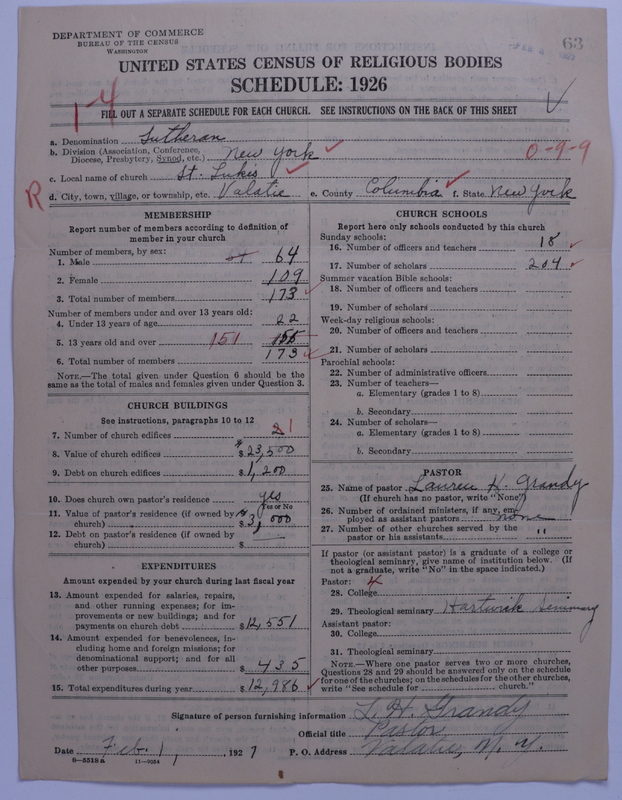 DEPARTMENT OF COMMERCE
BUREAU OF THE CENSUS
WASHINGTON
63
UNITED STATES CENSUS OF RELIGIOUS BODIES
SCHEDULE: 1926
1-4
FILL OUT A SEPARATE SCHEDULE FOR EACH CHURCH. SEE INSTRUCTIONS ON THE BACK OF THIS SHEET
a. Denomination Lutheran
b. Division (Association, Conference, Diocese, Presbytery, Synod, etc.) New York
0-9-9
c. Local name of church St. Lukes
R
d. City, town, village, or township, etc. Valatie e. County Columbia f. State New York
MEMBERSHIP
Report number of members according to definition of
member in your church
Number of members, by sex:
1. Male 64
2. Female 109
3. Total number of members 173
Number of members under and over 13 years old:
4. Under 13 years of age 22
5. 13 years old and over 151 155
6. Total number of members 173
NOTE.—The total given under Question 6 should be
same as the total of males and females given under Question 3.
CHURCH BUILDINGS
See instructions, paragraphs 10 to 12
7. Number of church edifices 2 1
8. Value of church edifices $23,500
9. Debt on church edifices $1,200
10. Does church own pastor's residence yes
Yes or No
11. Value of pastor's residence (if owned by
church) $3,000
12. Debt on pastor's residence (if owned by
church) $
EXPENDITURES
Amount expended by your church during last fiscal year
13. Amount expended for salaries, repairs,
and other running expenses; for im-
provements or new buildings; and for
payments on church debt $12,551
14. Amount expended for benevolences, in-
cluding home and foreign missions; for
denominational support; and for all
other purposes $435
15. Total expenditures during year $12,986
CHURCH SCHOOLS
Report here only schools conducted by this church
Sunday schools:
16. Number of officers and teachers 18
17. Number of scholars 204
Summer vacation Bible schools:
18. Number of officers and teachers
19. Number of scholars
Week-day religious schools:
20. Number of officers and teachers
21. Number of scholars
Parochial schools:
22. Number of administrative officers
23. Number of teachers—
a. Elementary (grades 1 to 8)
b. Secondary
24. Number of scholars—
a. Elementary (grades 1 to 8)
b. Secondary
PASTOR
25. Name of pastor Lauren H. Grandy
(If church has no pastor, write "None")
26. Number of ordained ministers, if any, em-
ployed as assistant pastors none
27. Number of other churches served by the
pastor or his assistants "
If pastor (or assistant pastor) is a graduate of a college or
theological seminary, give name of institution below. (If
not a graduate, write "No" in the space indicated.)
Pastor:
28. College
29. Theological seminary Hartwick Seminary
Assistant pastor:
30. College
31. Theological seminary
NOTE.—Where one pastor serves two or more churches,
Questions 28 and 29 should be answered only on the schedule
for one of the churches; on the schedules for the other churches,
write "See schedule for church."
Signature of person furnishing information L. H. Grandy
Official title Pastor
Date Feb. 1, 1927 P. O. Address Valatie, N. Y.
8-5518a 11-9034